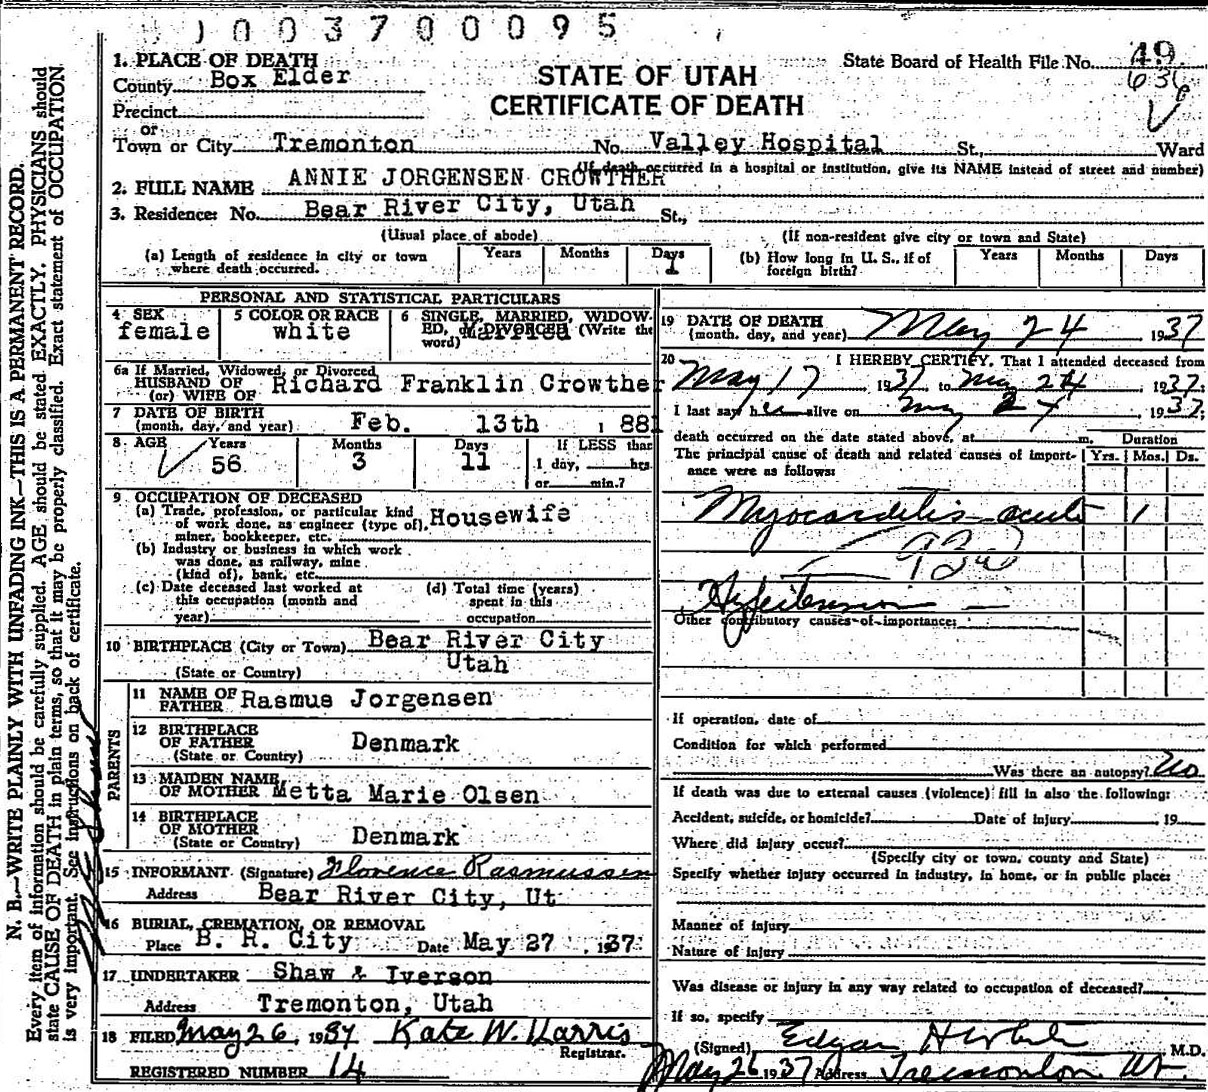 1003700095
1. PLACE OF DEATH
County Box Elder
STATE OF UTAH
CERTIFICATE OF DEATH
State Board of Health File No. 49
636
Precinct
or
Town or City Tremonton No. Valley Hospital St., Ward
(If death occurred in a hospital or institution, give its NAME instead of street and number)
2. FULL NAME ANNIE JORGENSEN CROWTHER
3. Residence: No. Bear River City, Utah St.,
(Usual place of abode) (If non-resident give city or town and State)
(a) Length of residence in city or town where death occurred. Years Months Days 1
(b) How long in U. S., if of foreign birth? Years Months Days
PERSONAL AND STATISTICAL PARTICULARS
4 SEX female
5 COLOR OR RACE white
6 SINGLE, MARRIED, WIDOWED, or DIVORCED (Write the word) Married
6a If Married, Widowed, or Divorced
HUSBAND OF
(or) WIFE OF Richard Franklin Crowther
7 DATE OF BIRTH
(month, day, and year) Feb. 13th 1881
8 AGE Years 56 Months 3 Days 11 If LESS than 1 day, hrs. or min.?
9 OCCUPATION OF DECEASED
(a) Trade, profession, or particular kind
of work done, as engineer (type of), Housewife
miner, bookkeeper, etc.
(b) Industry or business in which work
was done, as railway, mine
(kind of), bank, etc.
(c) Date deceased last worked at
this occupation (month and
year)
(d) Total time (years)
spent in this
occupation
10 BIRTHPLACE (City or Town) Bear River City
Utah
(State or Country)
PARENTS
11 NAME OF
FATHER Rasmus Jorgensen
12 BIRTHPLACE
OF FATHER Denmark
(State or Country)
13 MAIDEN NAME
OF MOTHER Metta Marie Olsen
14 BIRTHPLACE
OF MOTHER Denmark
(State or Country)
15 INFORMANT (Signature) Florence Rasmussen
Address Bear River City, Ut
16 BURIAL, CREMATION, OR REMOVAL
Place B. R. City Date May 27, 1937
17 UNDERTAKER Shaw & Iverson
Address Tremonton, Utah
18 FILED May 26, 1937 Kate W. Harris
Registrar.
REGISTERED NUMBER 14
19 DATE OF DEATH
(month, day, and year) May 24 1937
20 I HEREBY CERTIFY, That I attended deceased from
May 17 1937, to May 24, 1937.
I last saw her alive on May 24, 1937;
death occurred on the date stated above, at m. Duration
The principal cause of death and related causes of importance were as follows: Yrs. Mos. Ds.
Myocarditis acute 1
93a
Hypertension
Other contributory causes of importance:
If operation, date of
Condition for which performed
Was there an autopsy? No
If death was due to external causes (violence) fill in also the following:
Accident, suicide, or homicide? Date of injury 19
Where did injury occur?
(Specify city or town, county and State)
Specify whether injury occurred in industry, in home, or in public place:
Manner of injury
Nature of injury
Was disease or injury in any way related to occupation of deceased?
If so, specify
(Signed) Edgar M.D.
May 26 1937 Address Tremonton Ut.
N. B.—WRITE PLAINLY WITH UNFADING INK—THIS IS A PERMANENT RECORD.
Every item of information should be carefully supplied. AGE should be stated EXACTLY. PHYSICIANS should
state CAUSE OF DEATH in plain terms, so that it may be properly classified. Exact statement of OCCUPATION
is very important. See instructions on back of certificate.